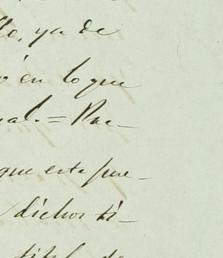 llo, ya de
ó en lo que
ual. = Pue-
que esta pue-
dichos ti-
titul de